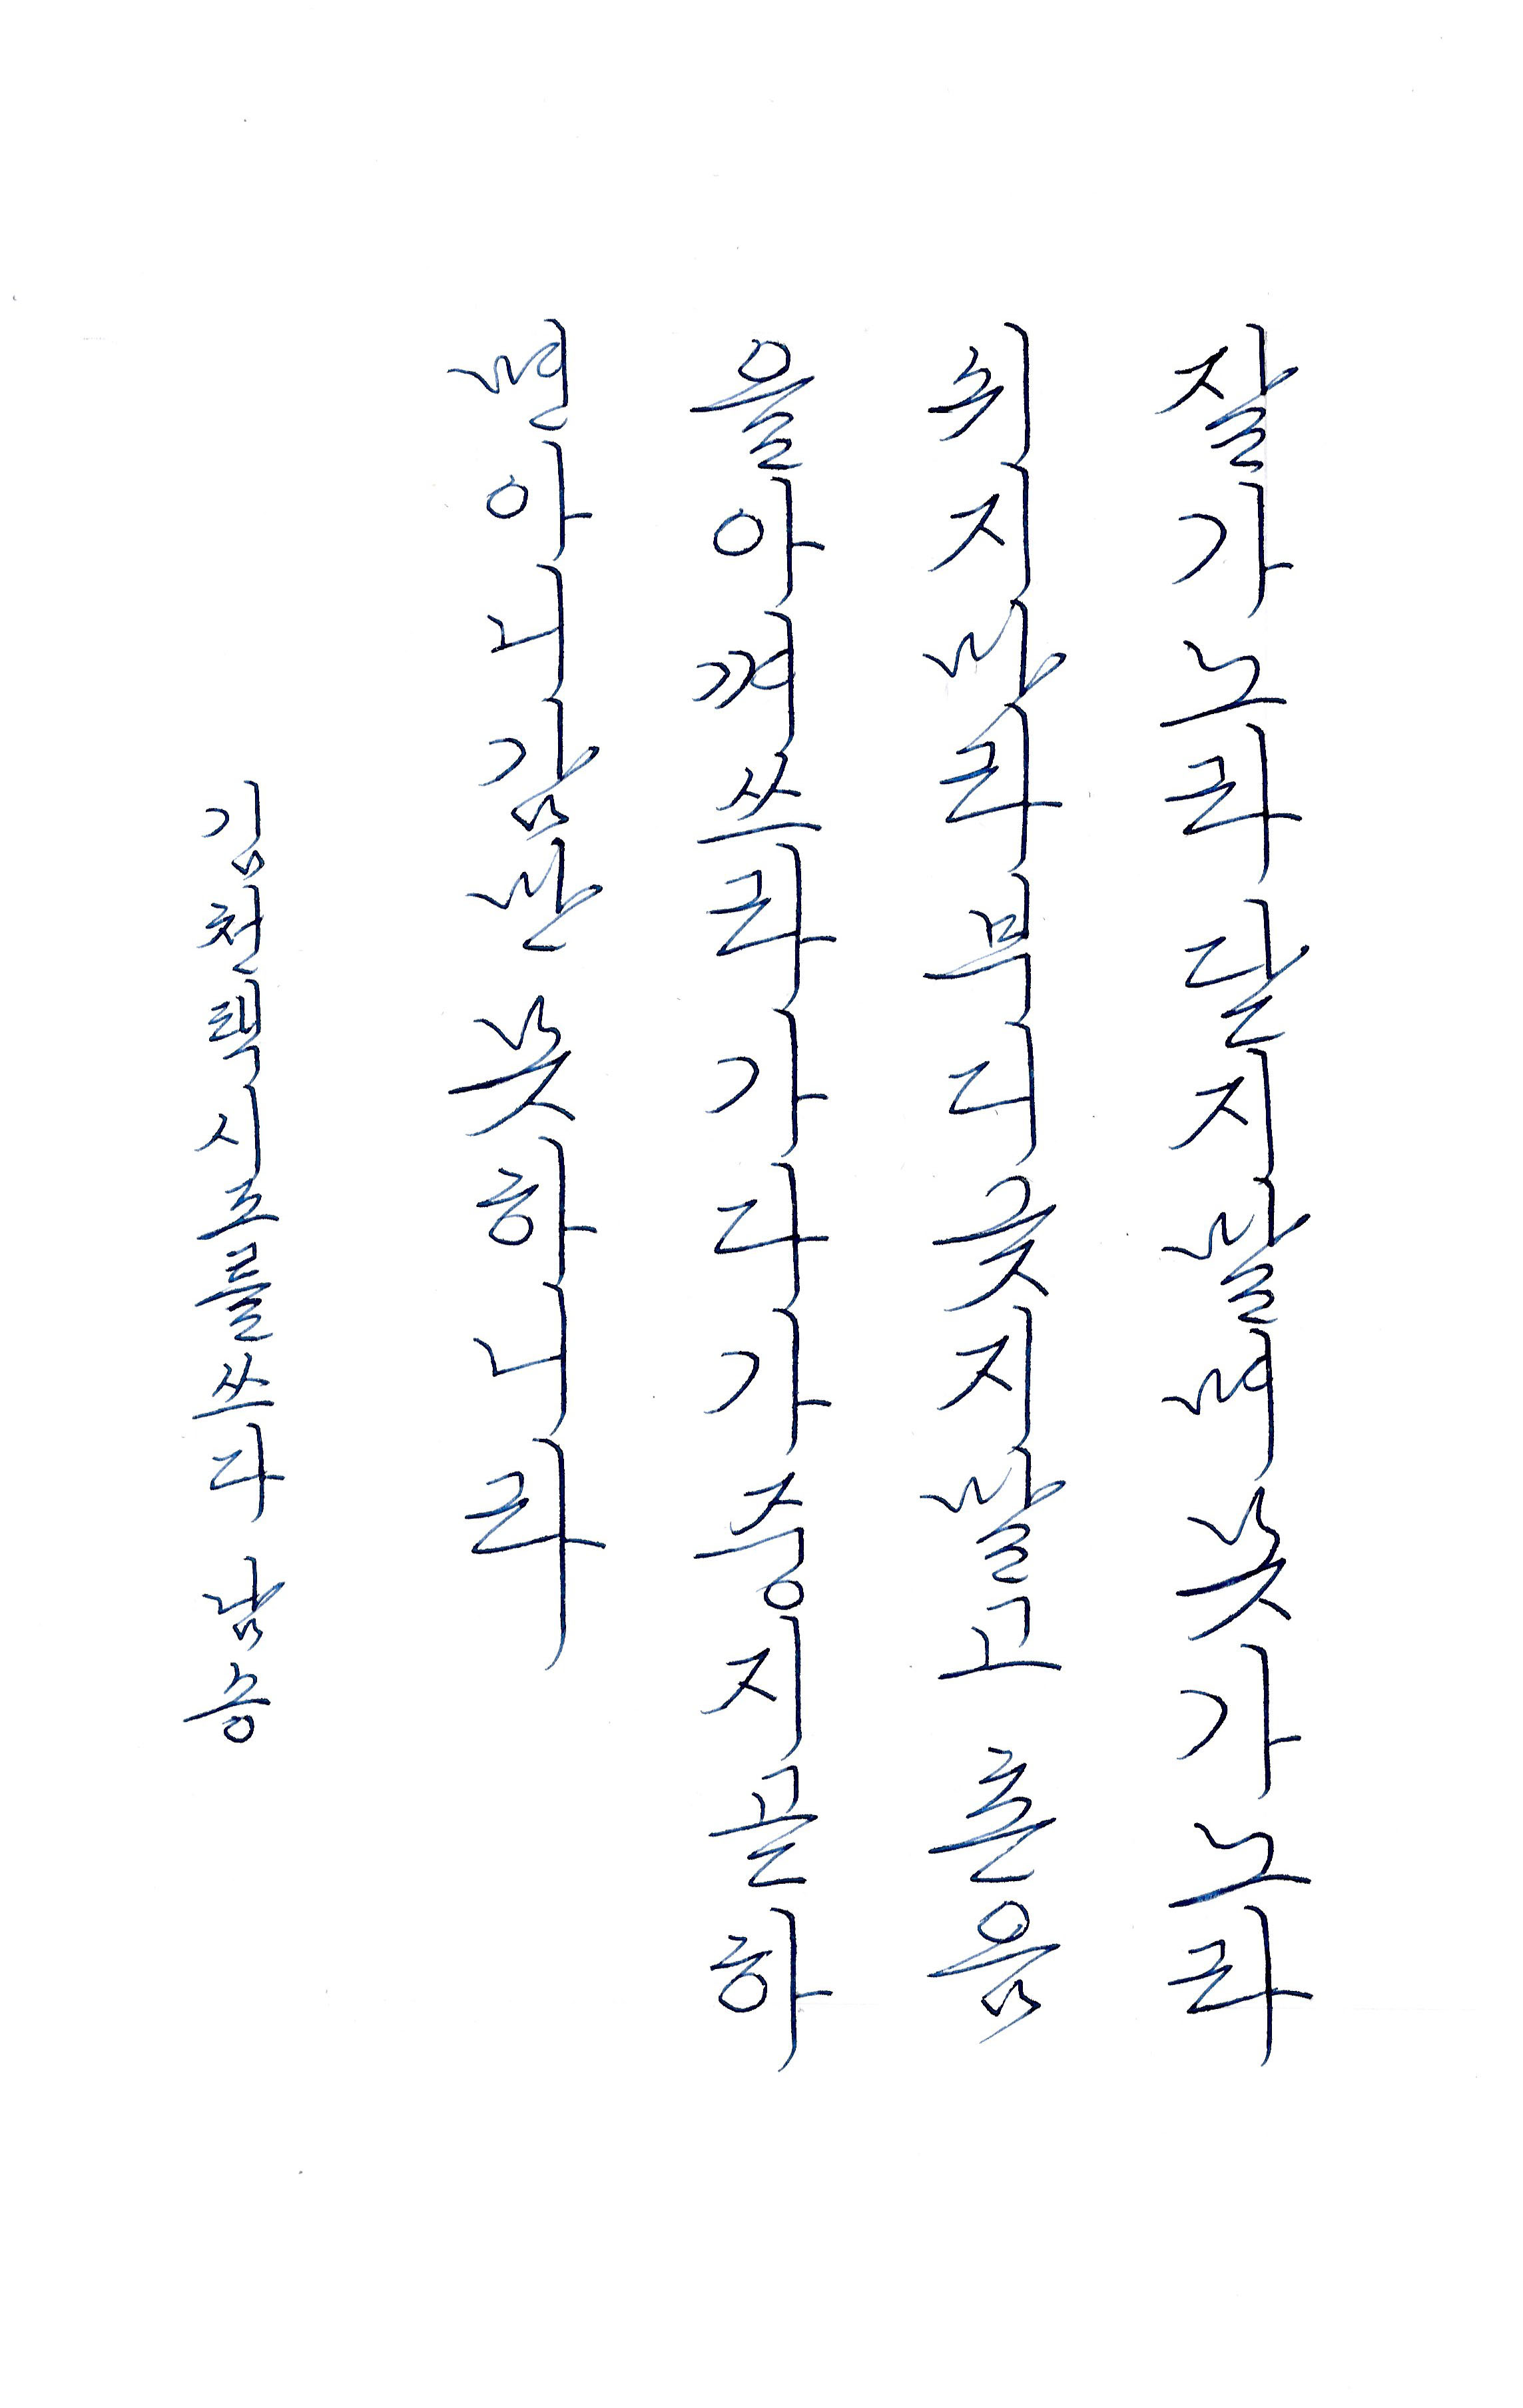 잘가노라닫지말며못가노라
쉬지마라부디긋지말고 촌음
을아껴쓰라가다가중지곧하
면아니감만 못하니라
김천택시조를쓰다 남승